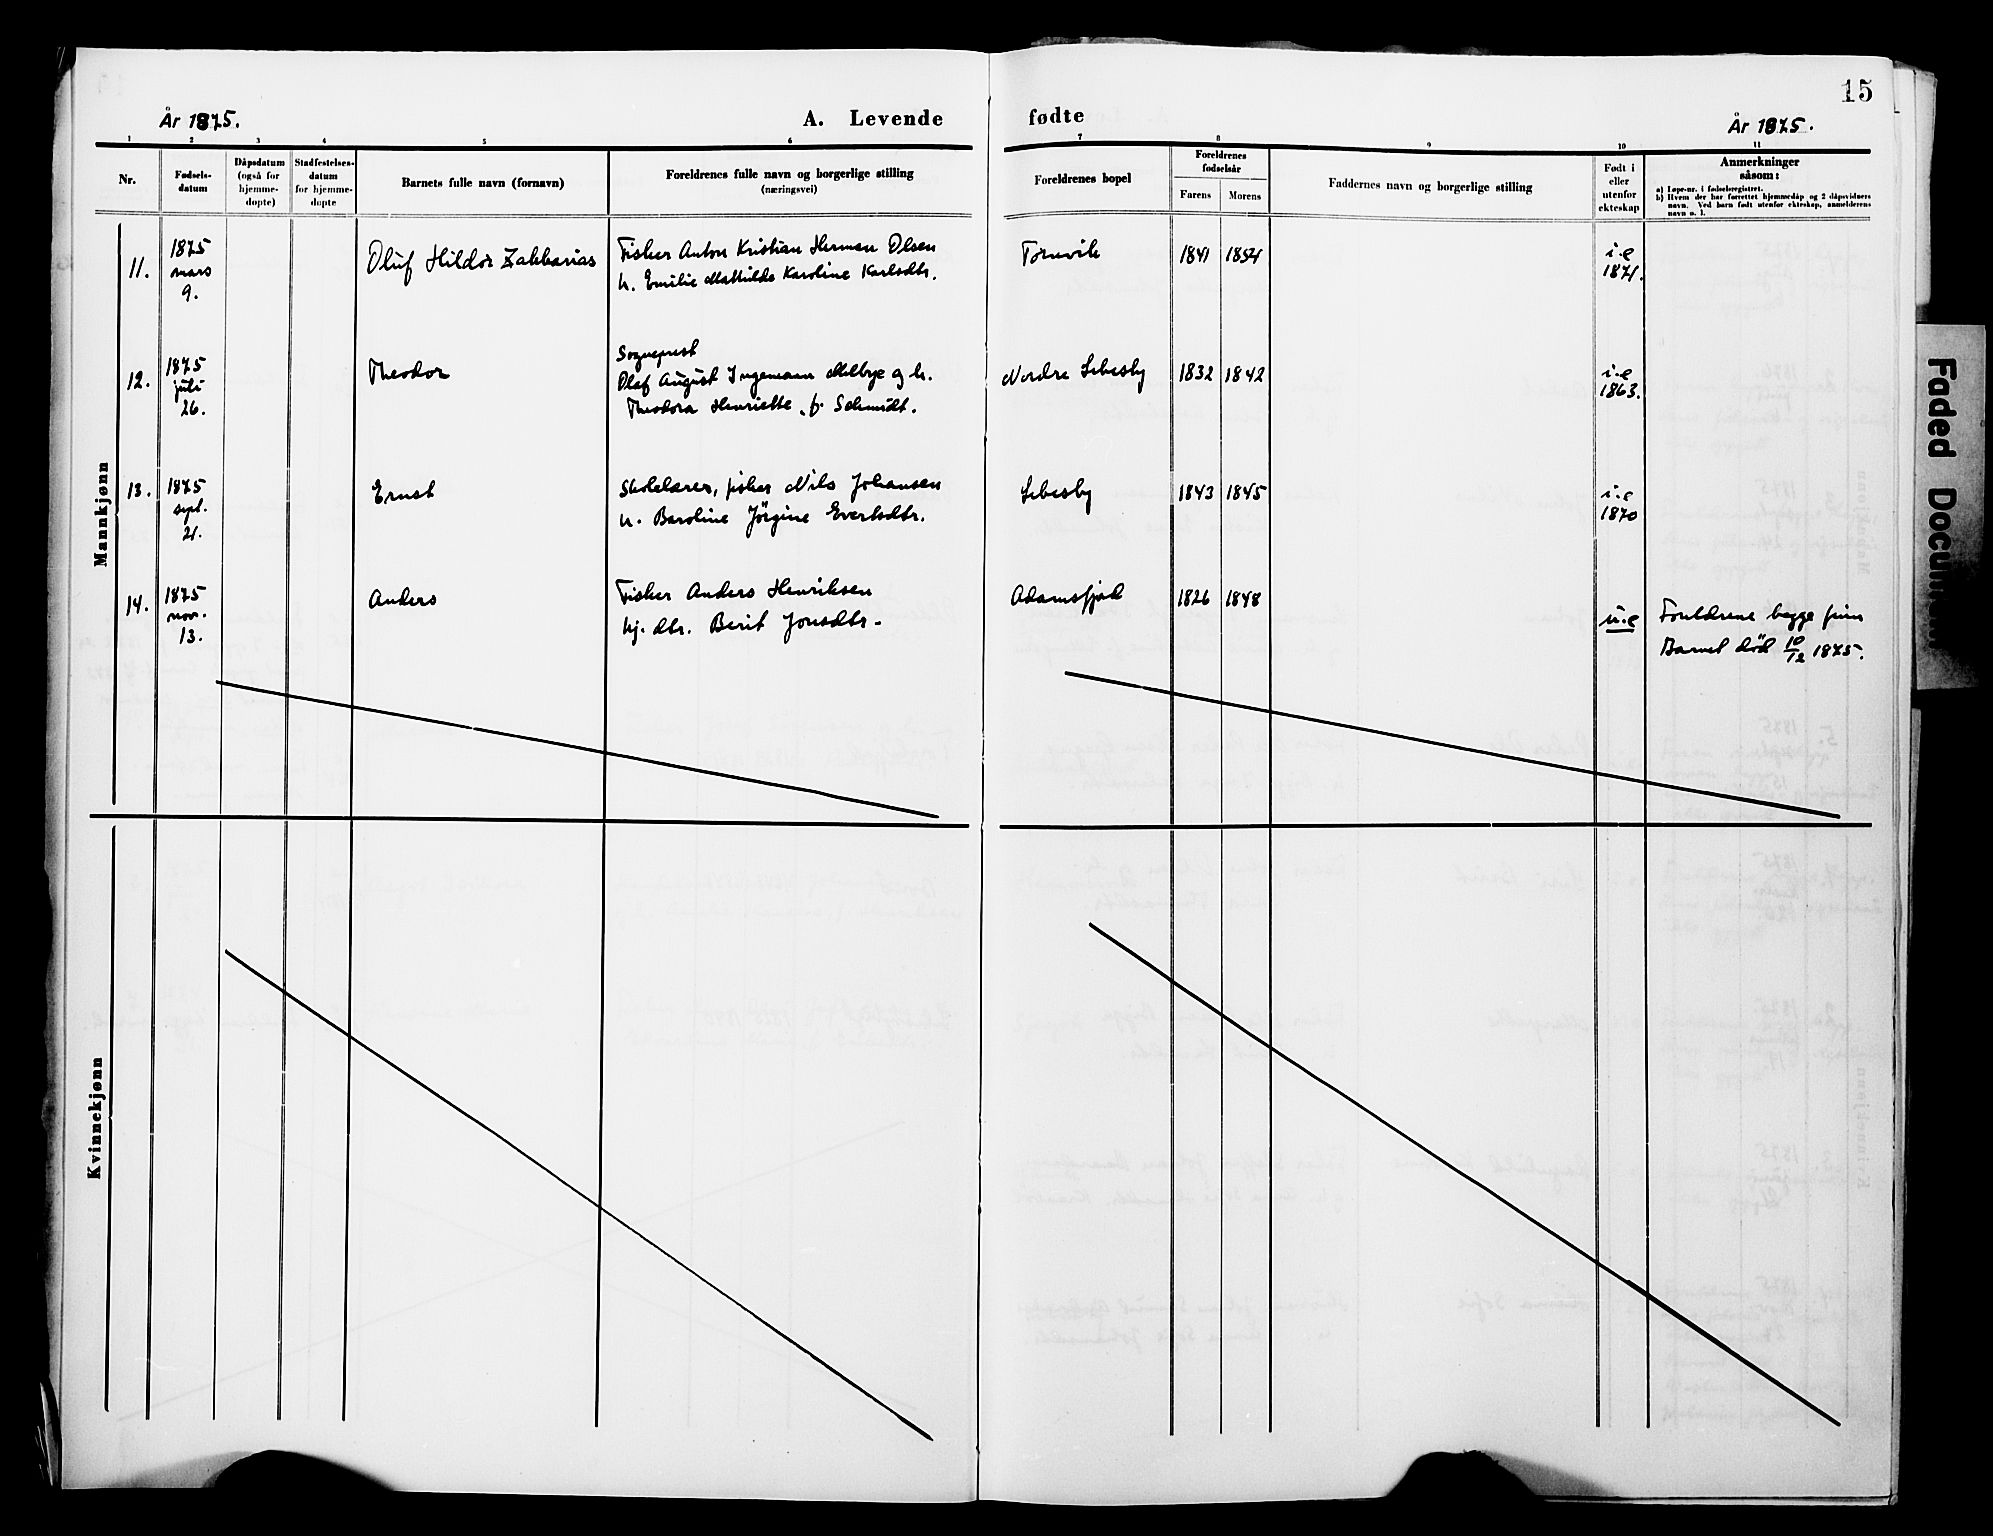 15
År 1875.
A. Levende
fødte
År 1875.
1 2 3 4 5 6 7 8 9 10 11
Nr.
Fødsels-
datum
Dåpsdatum
(også for
hjemme-
døpte)
Stadfestelses-
datum
for hjemme-
døpte
Barnets fulle navn (fornavn)
Foreldrenes fulle navn og borgerlige stilling
(næringsvei)
Foreldrenes bopel
Foreldrenes
fødselsår
Farens Morens
Faddernes navn og borgerlige stilling
Født i
eller
utenfor
ekteskap
Anmerkninger
såsom:
a) Løpe-nr. i fødselsregistret.
b) Hvem der har forrettet hjemmedåp og 2 dåpsvidners
navn. Ved barn født utenfor ekteskap, anmelderens
navn o. l.
Mannkjønn
11.
1875
mars
9.
Oluf Hildor Zakkarias
Fisker Anton Kristian Herman Olsen
h. Emilie Mathilde Karoline Karlsdtr.
Tømvik
1841 1854
i.e
1871.
12.
1875
juli
26.
Theodor
Sogneprest
Olaf August Ingemann Melbye og h.
Theodora Henriette, f. Schmidt.
Nordre Lebesby
1832 1842
i.e
1863.
13.
1875
sept.
21.
Ernst
Skolelærer, fisker Nils Johansen
h. Baroline Jörgine Evertsdtr.
Lebesby
1843 1845
i.e
1870
14.
1875
nov.
13.
Anders
Fisker Anders Henriksen
hj. dtr. Berit Jonsdtr.
Adamsfjord
1826 1848
u.e
Foreldrene begge finn
Barnet död 10/12 1875.
Kvinnekjønn
Faded Document